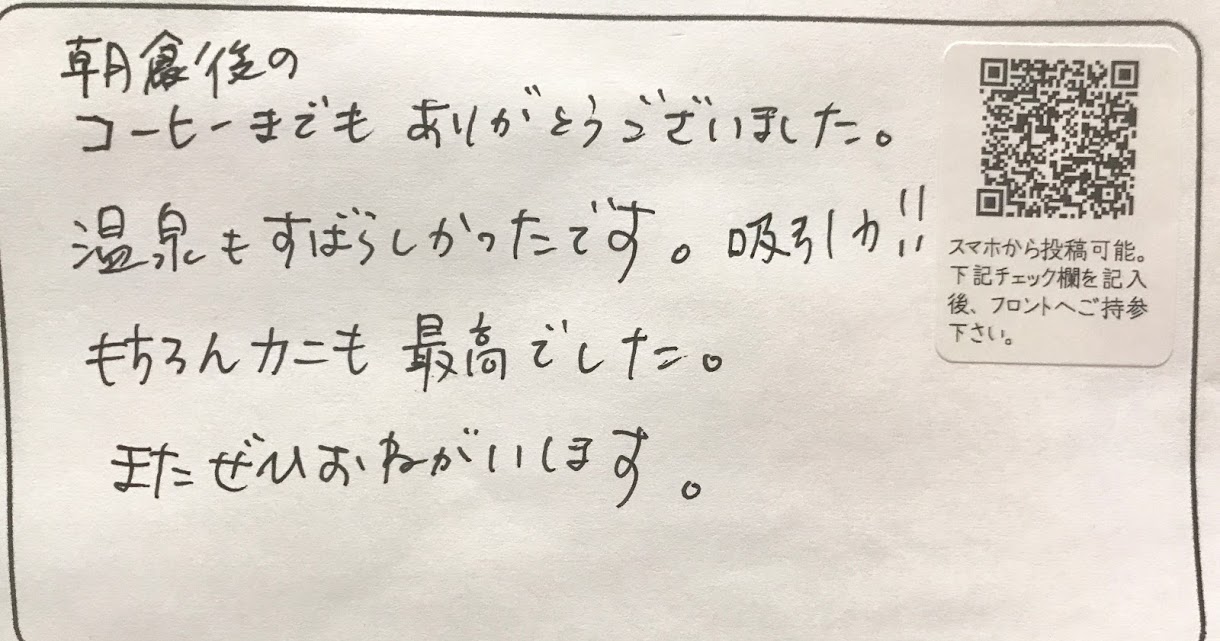 朝食後の
コーヒーまでも ありがとうございました。
温泉もすばらしかったです。吸引力!!
もちろんカニも 最高でした。
またぜひおねがいします。
スマホから投稿可能。
下記チェック欄を記入
後、フロントへご持参
下さい。